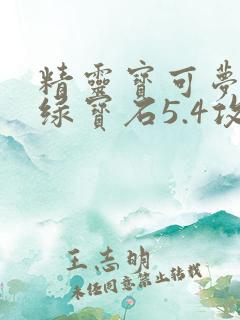 精靈寶可夢
綠寶石5.4攻
王志明
未经同意禁止转载